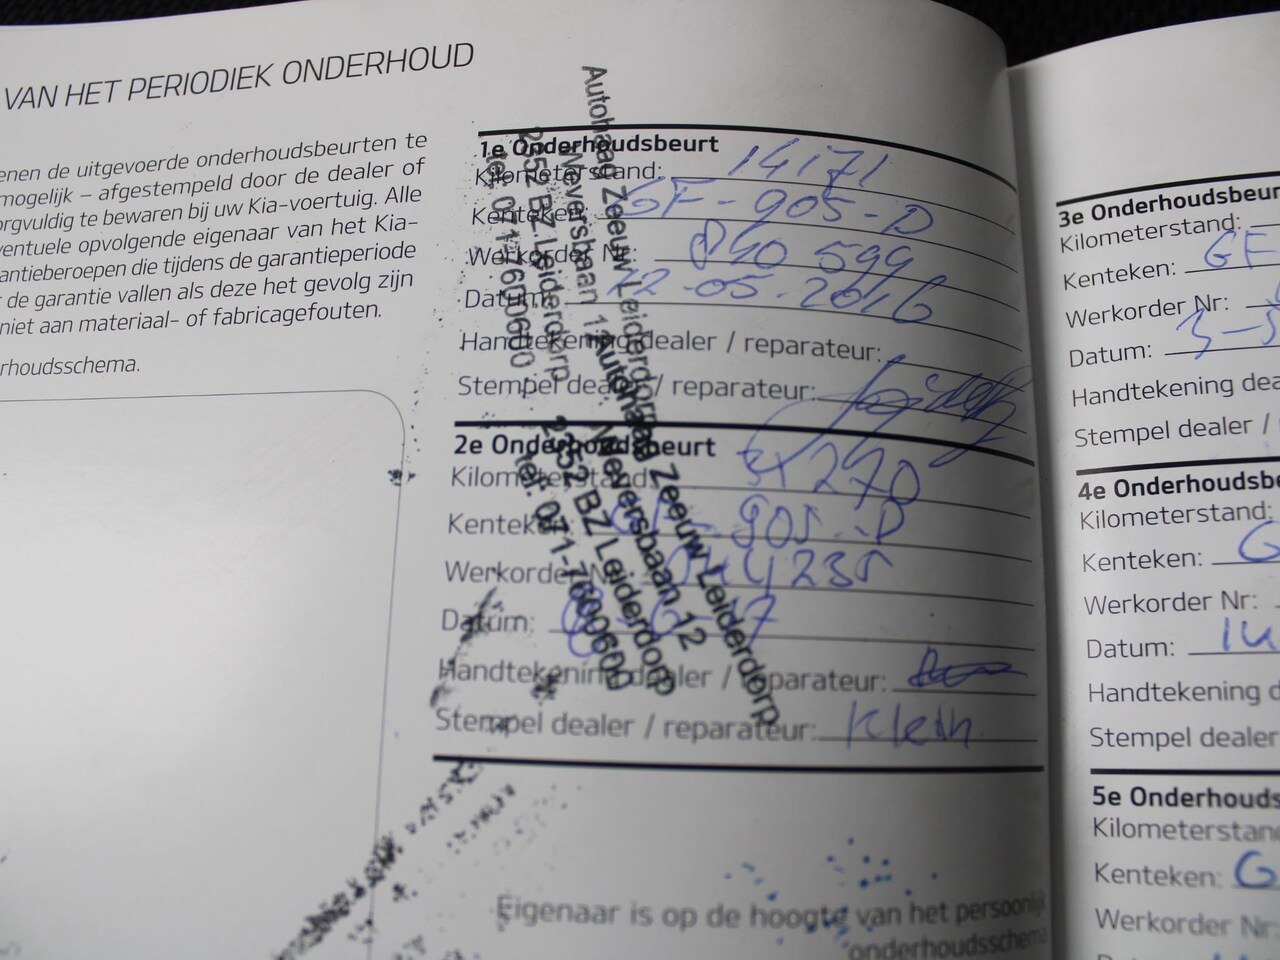 VAN HET PERIODIEK ONDERHOUD
enen de uitgevoerde onderhoudsbeurten te
mogelijk – afgestempeld door de dealer of
orgvuldig te bewaren bij uw Kia-voertuig. Alle
ventuele opvolgende eigenaar van het Kia-
antieberoepen die tijdens de garantieperiode
de garantie vallen als deze het gevolg zijn
niet aan materiaal- of fabricagefouten.
rhoudsschema.
1e Onderhoudsbeurt
Kilometerstand: 14171
Kenteken: GF-905-D
Werkorder Nr: 840 599
Datum: 12-05-2016
Handtekening dealer / reparateur:
Stempel dealer / reparateur:
Autohaas Zeeuw Leiderdorp
Weversbaan 12
2352 BZ Leiderdorp
tel. 071-7600600
2e Onderhoudsbeurt
Kilometerstand: 270
Kenteken: GF-905-D
Werkorder Nr: 044235
Datum:
Handtekening dealer / reparateur:
Stempel dealer / reparateur: Klein
Autohaas Zeeuw Leiderdorp
Weversbaan 12
2352 BZ Leiderdorp
tel. 071-7600600
Eigenaar is op de hoogte van het persoonlijk
onderhoudsschema
3e Onderhoudsbeur
Kilometerstand:
Kenteken: GF
Werkorder Nr:
Datum: 3-5
Handtekening dea
Stempel dealer /
4e Onderhoudsbe
Kilometerstand:
Kenteken: G
Werkorder Nr:
Datum: 14
Handtekening d
Stempel dealer
5e Onderhouds
Kilometerstan
Kenteken: G
Werkorder Nr: